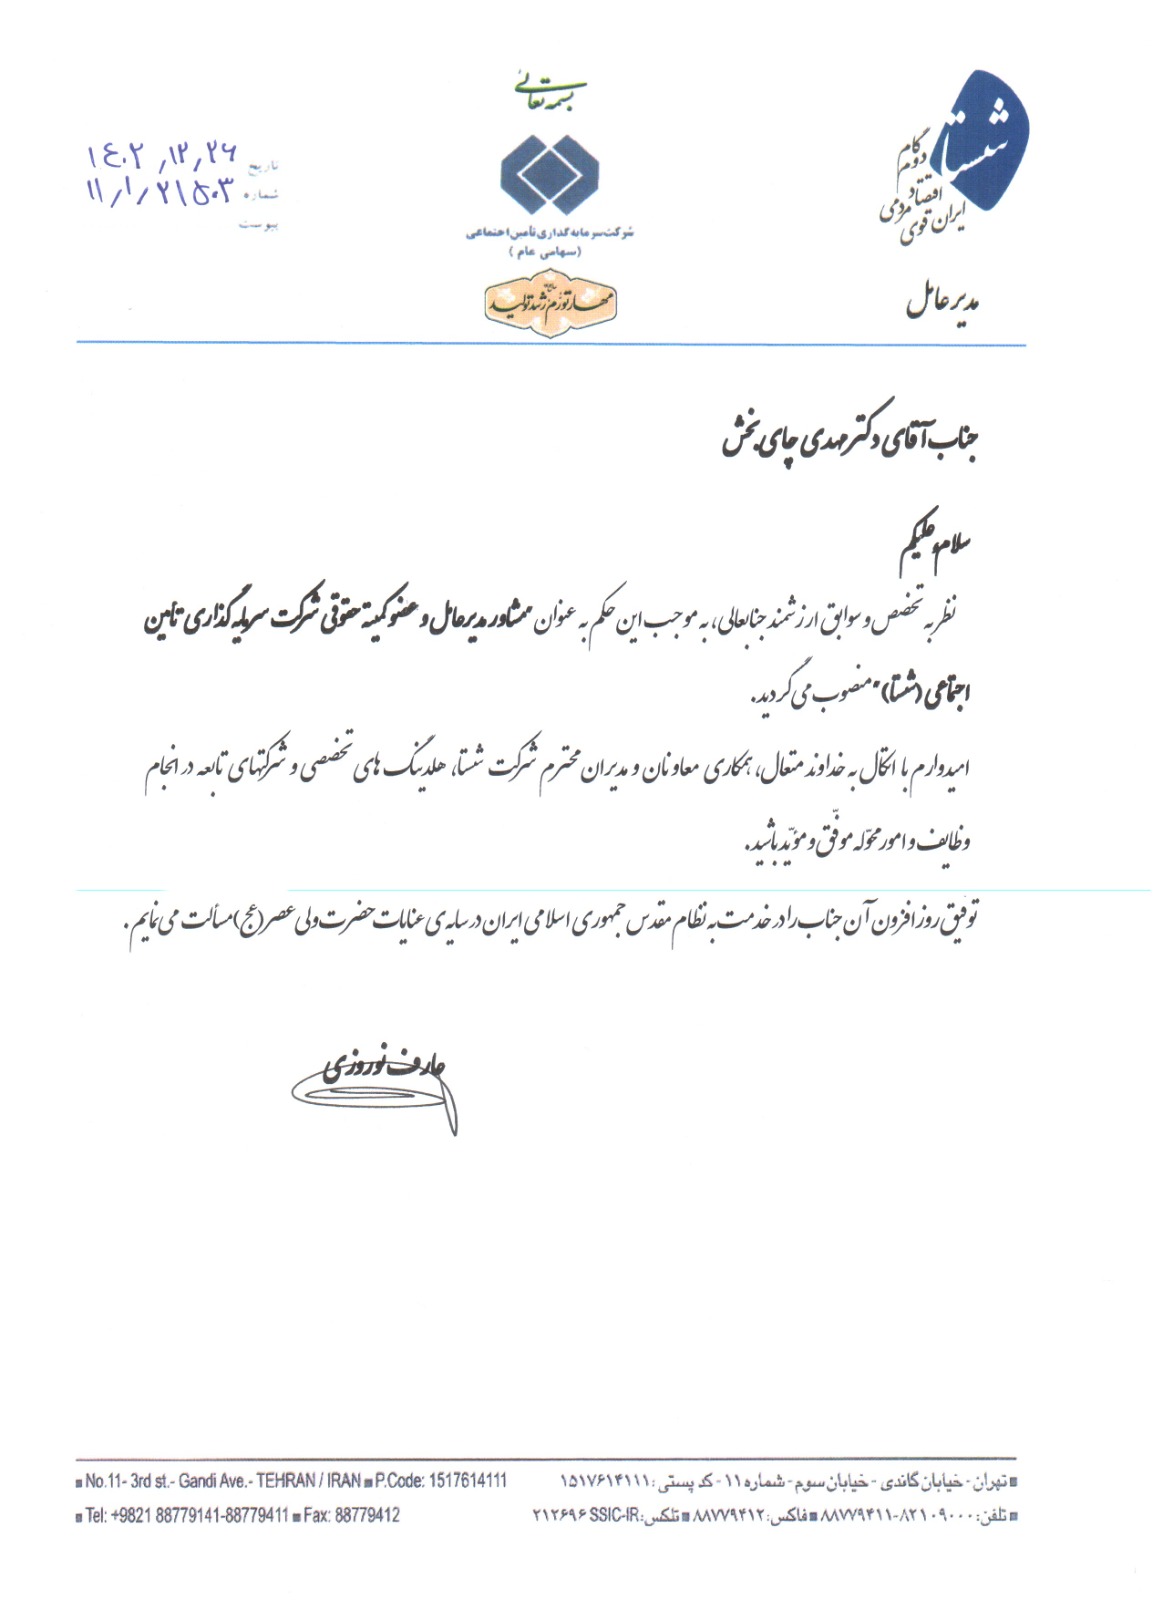 بسمه تعالی
شستا
گام دوم
اقتصاد مردمی
ایران قوی
مدیر عامل
شرکت سرمایه گذاری تأمین اجتماعی
(سهامی عام)
مهار تورم رشد تولید
تاریخ ۱۴۰۲,۱۲,۲۶
شماره ۱۱/۱/۲۱۵۰۳
پیوست
جناب آقای دکتر مهدی چای بخش
سلام علیکم
نظر به تخصص و سوابق ارزشمند جنابعالی، به موجب این حکم به عنوان "مشاور مدیرعامل و عضو کمیته حقوقی شرکت سرمایه گذاری تامین
اجتماعی (شستا)" منصوب می گردید.
امیدوارم با اتکال به خداوند متعال، همکاری معاونان و مدیران محترم شرکت شستا، هلدینگ های تخصصی و شرکتهای تابعه در انجام
وظایف و امور محوّله موفّق و مؤیّد باشید.
توفیق روز افزون آن جناب را در خدمت به نظام مقدس جمهوری اسلامی ایران در سایه ی عنایات حضرت ولی عصر(عج) مسألت می نمایم.
عارف نوروزی
تهران - خیابان گاندی - خیابان سوم - شماره ۱۱ - کد پستی : ۱۵۱۷۶۱۴۱۱۱
تلفن: ۸۲۱۰۹۰۰۰-۸۸۷۷۹۴۱۱ فاکس: ۸۸۷۷۹۴۱۲ تلکس: ۲۱۲۶۹۶ SSIC-IR
No.11- 3rd st.- Gandi Ave.- TEHRAN / IRAN P.Code: 1517614111
Tel: +9821 88779141-88779411 Fax: 88779412